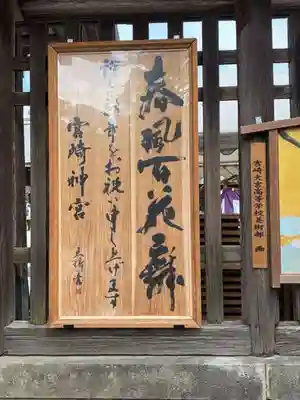 春風百花舞
新しい年をお祝い申し上げます
宮崎神宮
宮崎大宮高等学校美術部 画